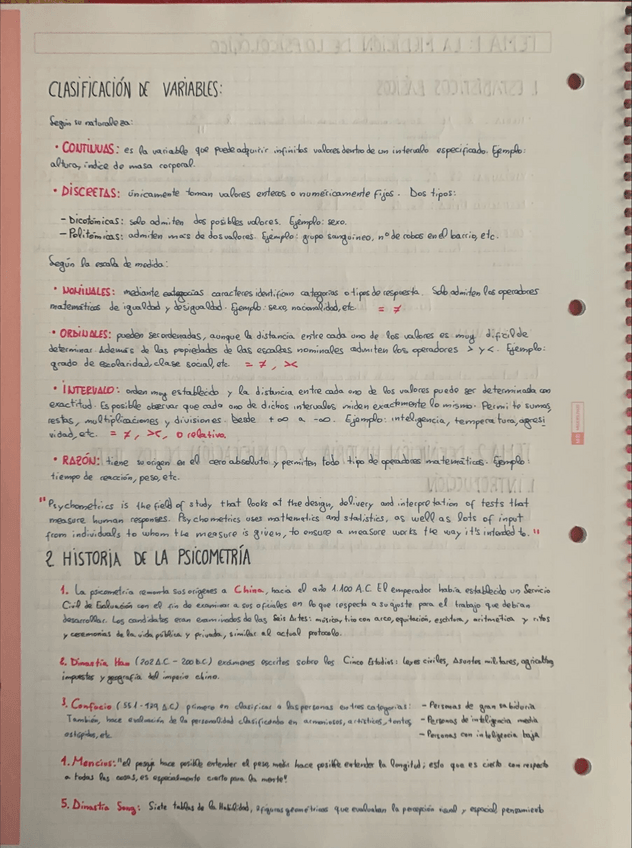 CLASIFICACIÓN DE VARIABLES:
Según su naturaleza:
• CONTINUAS: es la variable que puede adquirir infinitos valores dentro de un intervalo especificado. Ejemplo:
altura, índice de masa corporal.
• DISCRETAS: únicamente toman valores enteros o numéricamente fijos. Dos tipos:
- Dicotómicas: solo admiten dos posibles valores. Ejemplo: sexo.
- Politómicas: admiten más de dos valores. Ejemplo: grupo sanguíneo, nº de robos en el barrio, etc.
Según la escala de medida:
• NOMINALES: mediante caracteres identifican categorías o tipos de respuesta. Solo admiten los operadores
matemáticos de igualdad y desigualdad. Ejemplo: sexo, nacionalidad, etc = ≠
• ORDINALES: pueden ser ordenadas, aunque la distancia entre cada uno de los valores es muy difícil de
determinar. Además de las propiedades de las escalas nominales admiten los operadores > y <. Ejemplo:
grado de escolaridad, clase social, etc. = ≠, ><
• INTERVALO: orden muy establecido y la distancia entre cada uno de los valores puede ser determinada con
exactitud. Es posible observar que cada uno de dichos intervalos miden exactamente lo mismo. Permite sumas,
restas, multiplicaciones y divisiones. Desde +∞ a -∞. Ejemplo: inteligencia, temperatura, agresi
vidad, etc. = ≠, ><, 0 relativo
• RAZÓN: tiene su origen en el cero absoluto y permiten todo tipo de operadores matemáticos. Ejemplo:
tiempo de reacción, peso, etc.
"Psychometrics is the field of study that looks at the design, delivery and interpretation of tests that
measure human responses. Psychometrics uses mathematics and statistics, as well as lots of input
from individuals to whom the measure is given, to ensure a measure works the way it's intended to."
2. HISTORIA DE LA PSICOMETRÍA
1. La psicometría remonta sus orígenes a China, hacia el año 1.100 A.C. El emperador había establecido un Servicio
Civil de Evaluación con el fin de examinar a sus oficiales en lo que respecta a su ajuste para el trabajo que debían
desarrollar. Los candidatos eran examinados de las Seis Artes: música, tiro con arco, equitación, escritura, aritmética y ritos
y ceremonias de la vida pública y privada, similar al actual protocolo.
2. Dinastía Han (202 A.C - 200 D.C) exámenes escritos sobre los Cinco Estudios: Leyes civiles, Asuntos militares, agricultura,
impuestos y geografía del imperio chino.
3. Confucio (551 - 479 A.C) primero en clasificar a las personas en tres categorías: - Personas de gran sabiduría
También, hace evaluación de la personalidad clasificando en armoniosos, artísticos, tontos, - Personas de inteligencia media
estúpidos, etc. - Personas con inteligencia baja
4. Mencius: "el pesaje hace posible entender el peso, medir hace posible entender la longitud; esto que es cierto con respecto
a todas las cosas, es especialmente cierto para la mente".
5. Dinastía Song: Siete tablas de la Habilidad, figuras geométricas que evaluaban la percepción visual y espacial, pensamiento